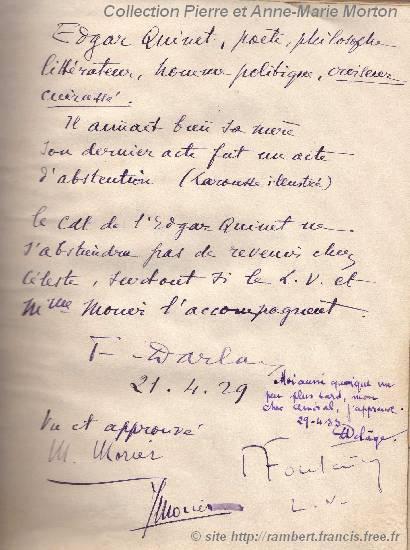 Collection Pierre et Anne-Marie Morton
Edgar Quinet, poète, philosophe
littérateur, homme politique, croiseur
cuirassé.
Il aimait bien sa mère
Son dernier acte fut un acte
d'abstention (Larousse illustré)
Le Cdt de l'Edgar Quinet ne
s'abstiendra pas de revenir chez
Céleste, surtout si le L.V. et
Mme Monier l'accompagnent.
F. Darlan
21.4.29
Moi aussi quoique un
peu plus tard, mon
cher Amiral, j'approuve
29-4-33
Delage
Vu et approuvé
M. Monier
L.V.
Monier
© site http://rambert.francis.free.fr